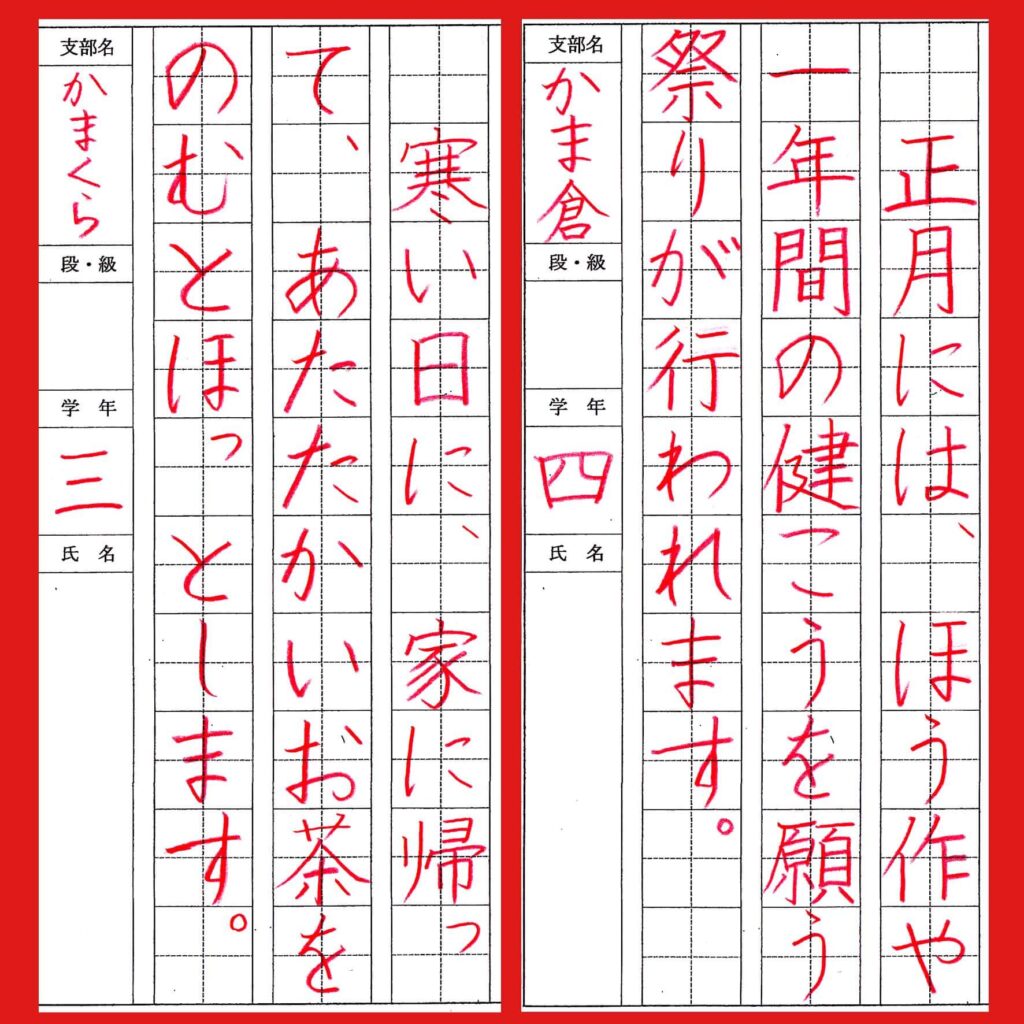 正月には、ほう作や
一年間の健こうを願う
祭りが行われます。
支部名
かま倉
段・級
学年
四
氏名
寒い日に、家に帰っ
て、あたたかいお茶を
のむとほっとします。
支部名
かまくら
段・級
学年
三
氏名